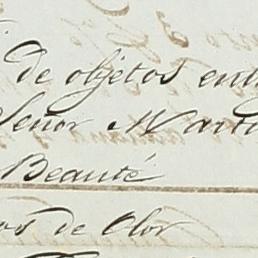 de objetos ent
Señor Marti
Beauté
os de Olor